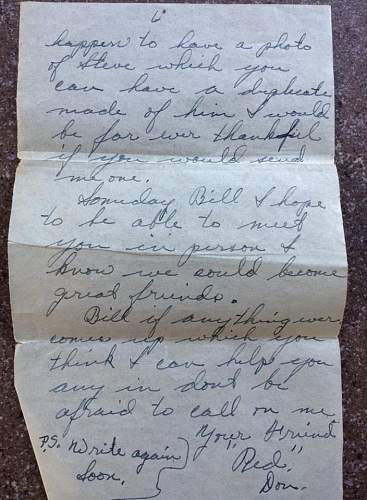 6.
happen to have a photo
of Steve which you
can have a duplicate
made of him I would
be for ever thankful
if you would send
me one.
Someday Bill I hope
to be able to meet
you in person I
know we could become
great friends.
Bill if anything ever
comes up which you
think I can help you
any in dont be
afraid to call on me
Your Friend
"Red."
Don.
P.S. Write again
Soon.